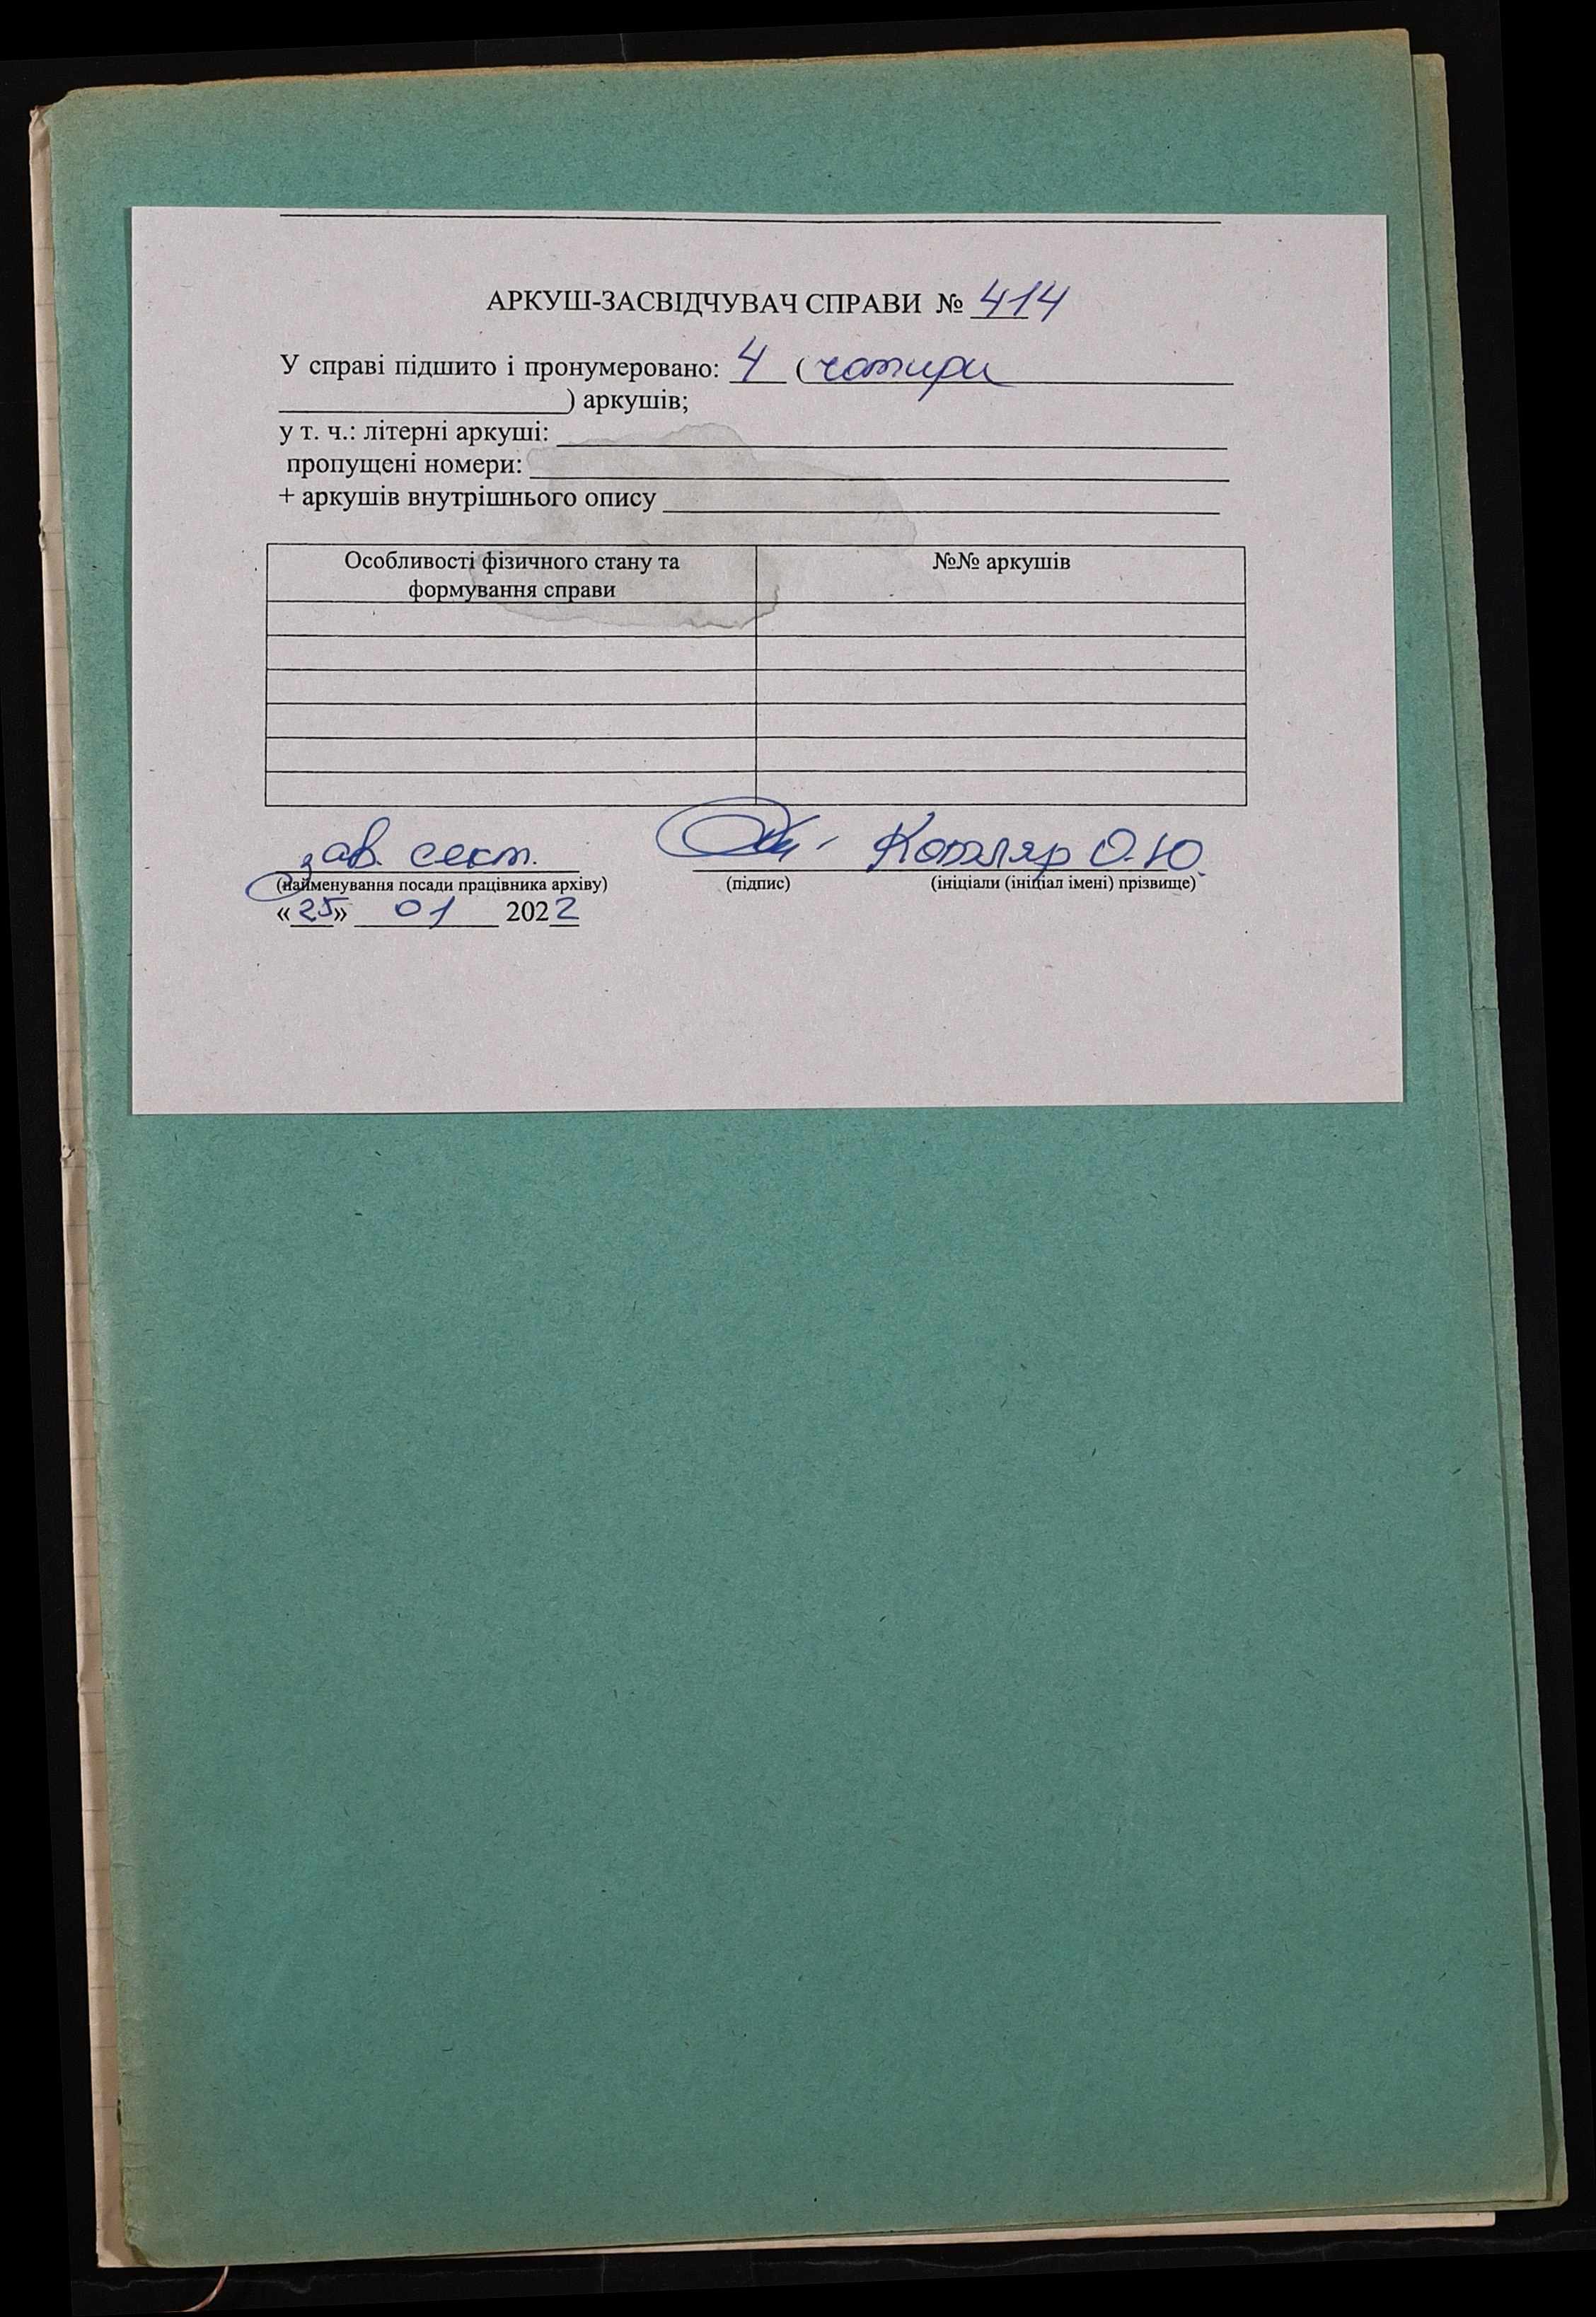 АРКУШ-ЗАСВІДЧУВАЧ СПРАВИ № 414
У справі підшито і пронумеровано: 4 (чотири
) аркушів;
у т. ч.: літерні аркуші:
пропущені номери:
+ аркушів внутрішнього опису
Особливості фізичного стану та формування справи №№ аркушів
зав. сект. Котляр О.Ю.
(найменування посади працівника архіву) (підпис) (ініціали (ініціал імені) прізвище)
«25» 01 2022